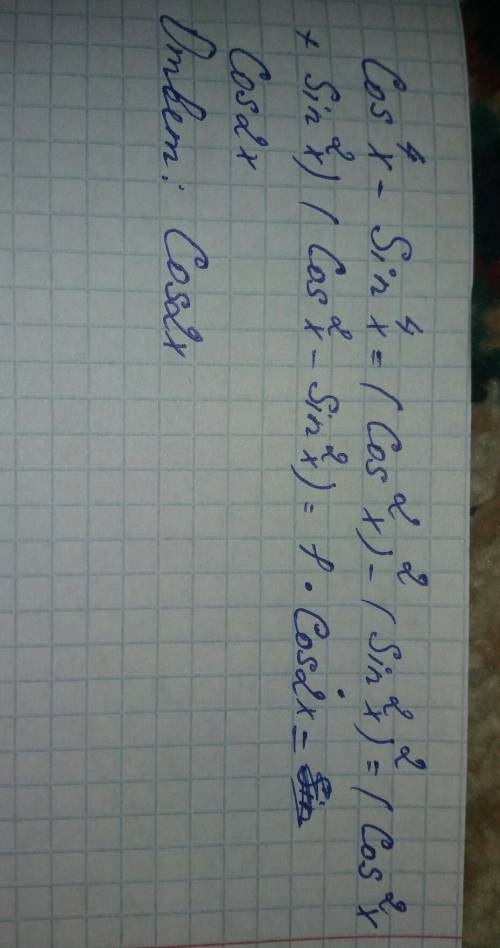 Cos⁴x - Sin⁴x = (Cos²x)² - (Sin²x)² = (Cos²x
+ Sin²x) (Cos²x - Sin²x) = 1 · Cos2x =
Cos2x
Ответ: Cos2x